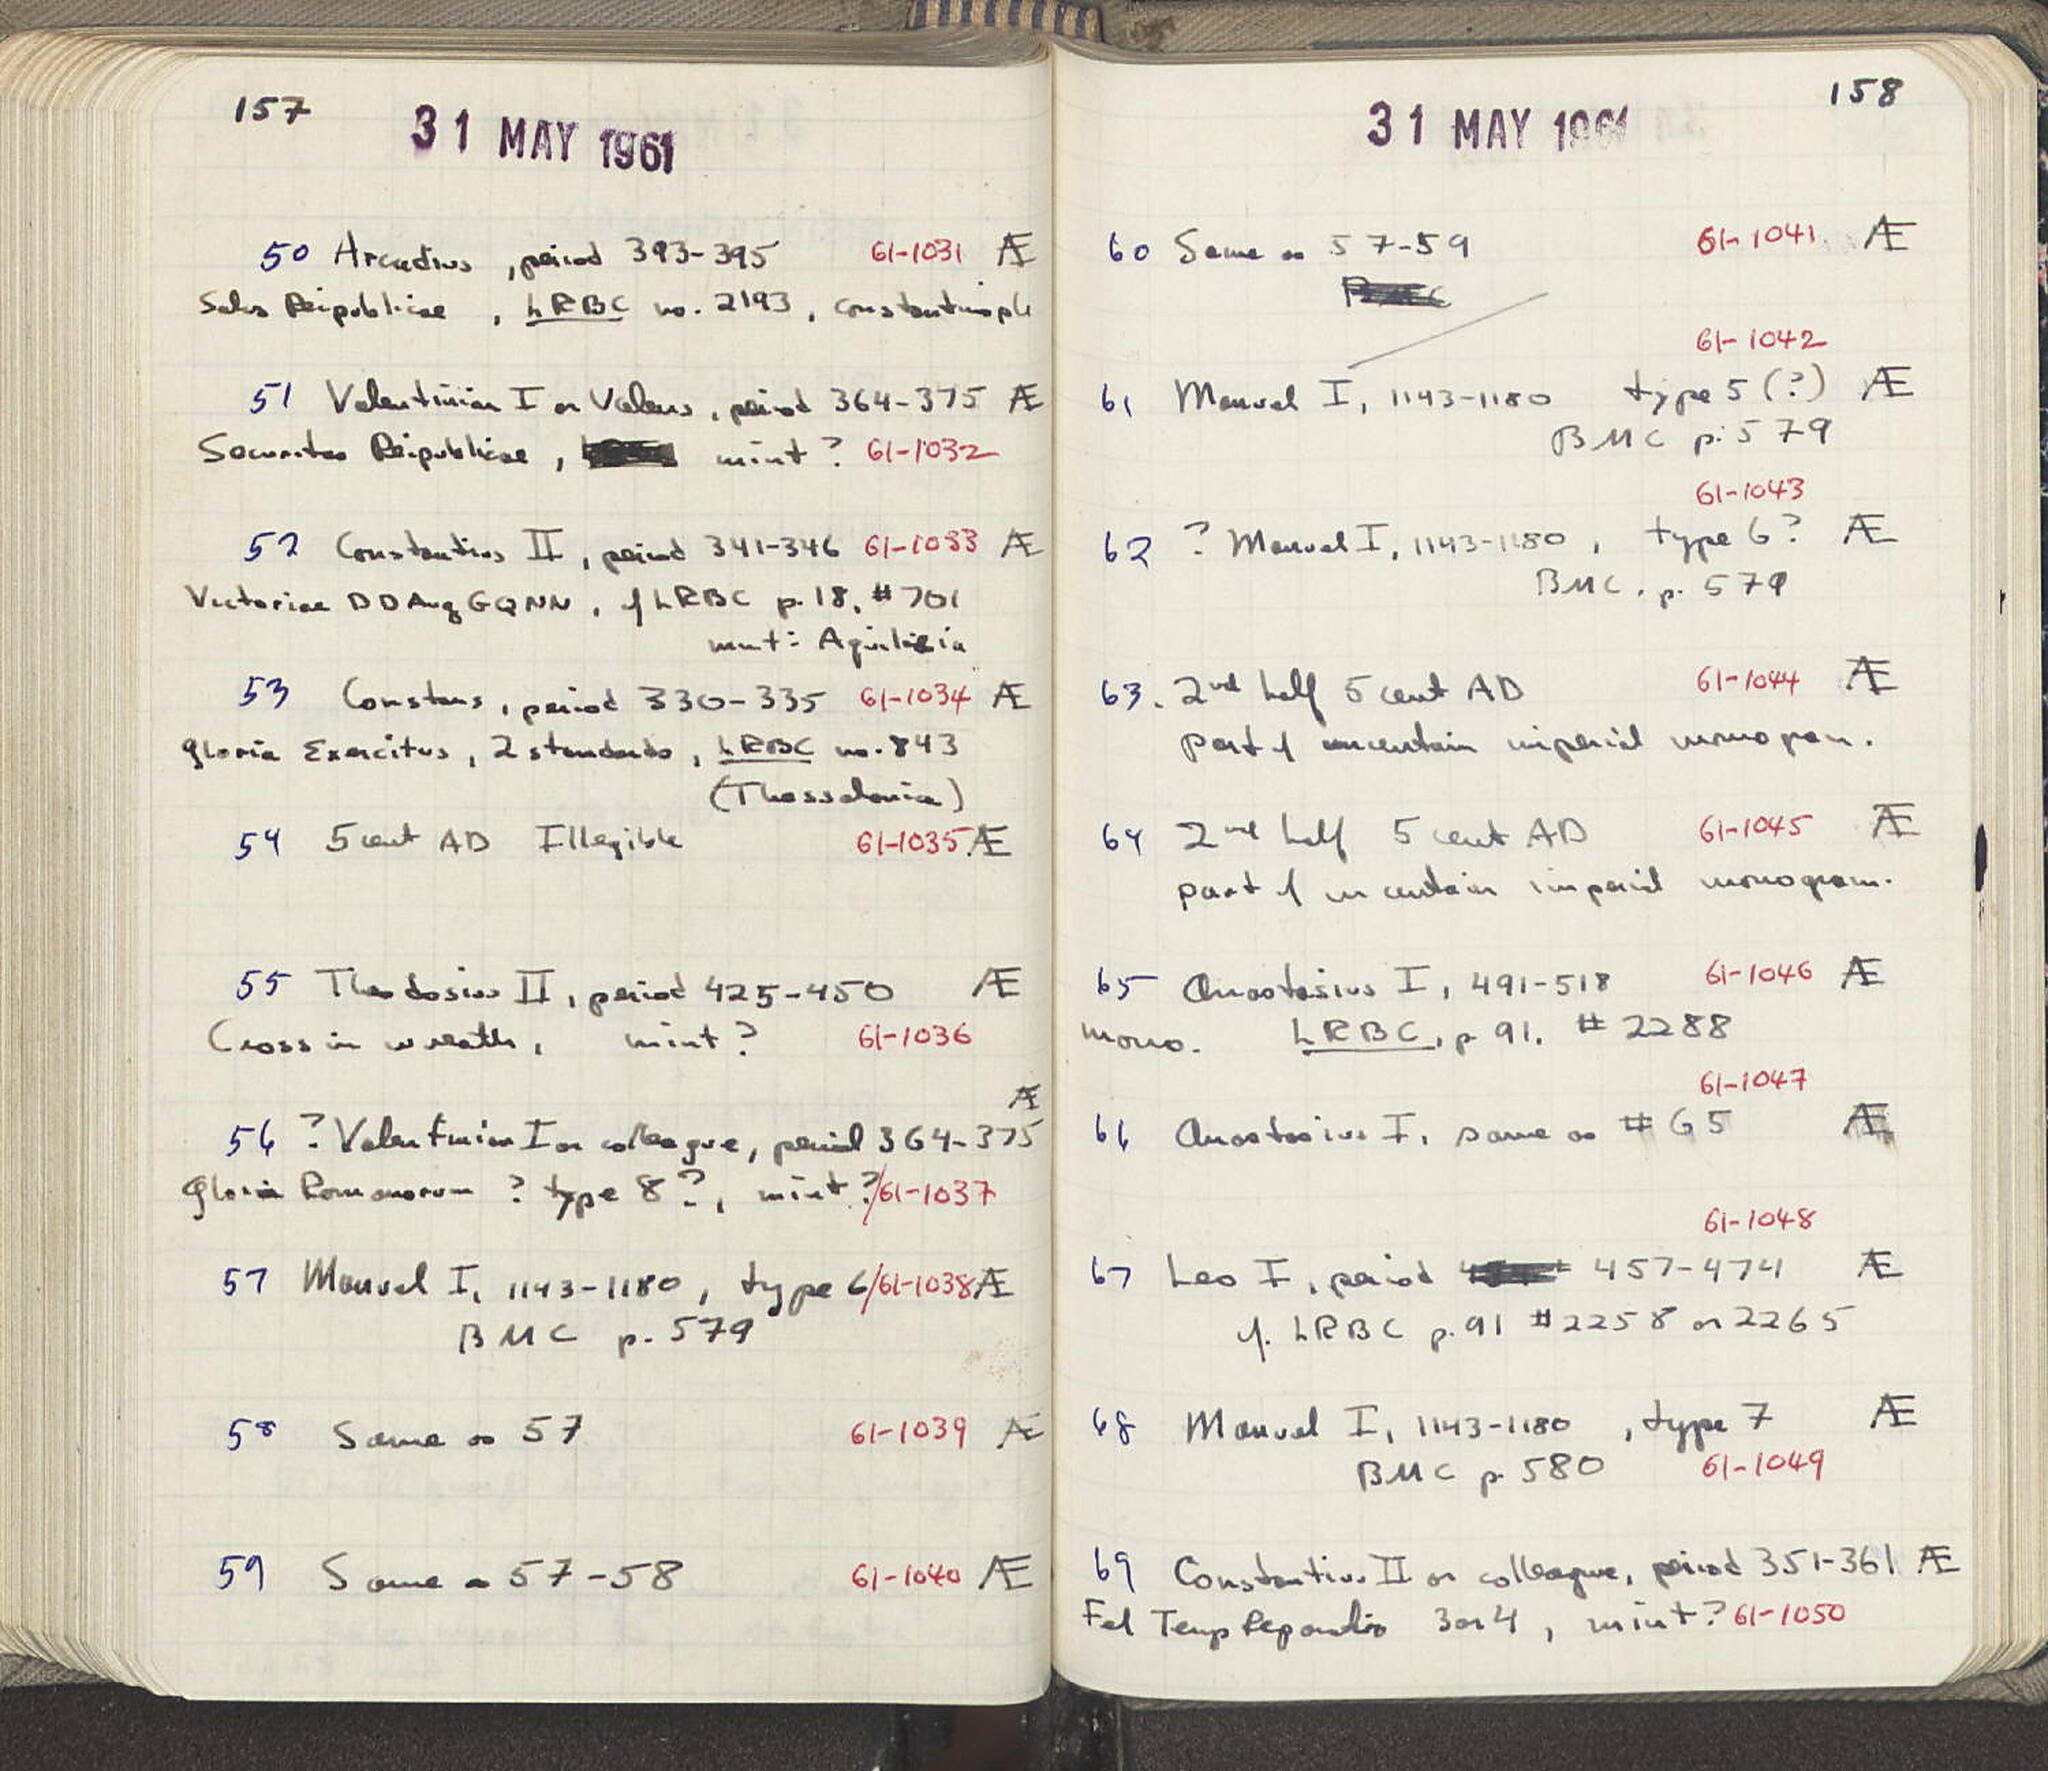 157
31 MAY 1961
50 Arcadius, period 393-395 61-1031 Æ
Salus Reipublicae, LRBC no. 2193, Constantinople
51 Valentinian I or Valens, period 364-375 Æ
Securitas Reipublicae, mint? 61-1032
52 Constantius II, period 341-346 61-1033 Æ
Victoriae DDAugGQNN, cf LRBC p. 18, #701
mint: Aquileia
53 Constans, period 330-335 61-1034 Æ
Gloria Exercitus, 2 standards, LRBC no. 843
(Thessalonica)
54 5 cent AD Illegible 61-1035 Æ
55 Theodosius II, period 425-450 Æ
Cross in wreath, mint? 61-1036
Æ
56 ? Valentinian I or colleague, period 364-375
Gloria Romanorum ? type 8?, mint?/61-1037
57 Manuel I, 1143-1180, type 6/61-1038 Æ
BMC p. 579
58 Same as 57 61-1039 Æ
59 Same as 57-58 61-1040 Æ
158
31 MAY 1961
60 Same as 57-59 61-1041 Æ
61-1042
61 Manuel I, 1143-1180 type 5 (?) Æ
BMC p. 579
61-1043
62 ? Manuel I, 1143-1180, type 6? Æ
BMC. p. 579
63. 2nd half 5 cent AD 61-1044 Æ
part of uncertain imperial monogram.
64 2nd half 5 cent AD 61-1045 Æ
part of uncertain imperial monogram.
65 Anastasius I, 491-518 61-1046 Æ
mono. LRBC, p 91. #2288
61-1047
66 Anastasius I, same as #65 Æ
61-1048
67 Leo I, period 457-474 Æ
cf. LRBC p. 91 #2258 or 2265
68 Manuel I, 1143-1180, type 7 Æ
BMC p. 580 61-1049
69 Constantius II or colleague, period 351-361 Æ
Fel Temp Reparatio 3 or 4, mint? 61-1050